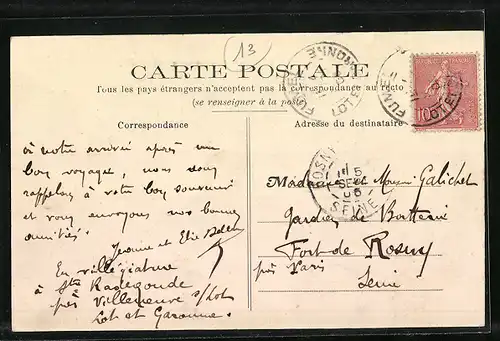 13
CARTE POSTALE
Tous les pays étrangers n'acceptent pas la correspondance au recto
(se renseigner à la poste)
Correspondance
Adresse du destinataire
à notre arrivée après un
bon voyage, nous nous
rappelons à votre bon souvenir
et vous envoyons nos bonnes
amitiés.
Jeanne et Elie
En villégiature
à Ste Radegonde
près Villeneuve s/Lot
Lot et Garonne.
Madame et Galichet
Gardien de Batterie
Fort de Rosny
près Paris
Seine
FUMEL
LOT-ET-
FUMEL
10
15
SEINE